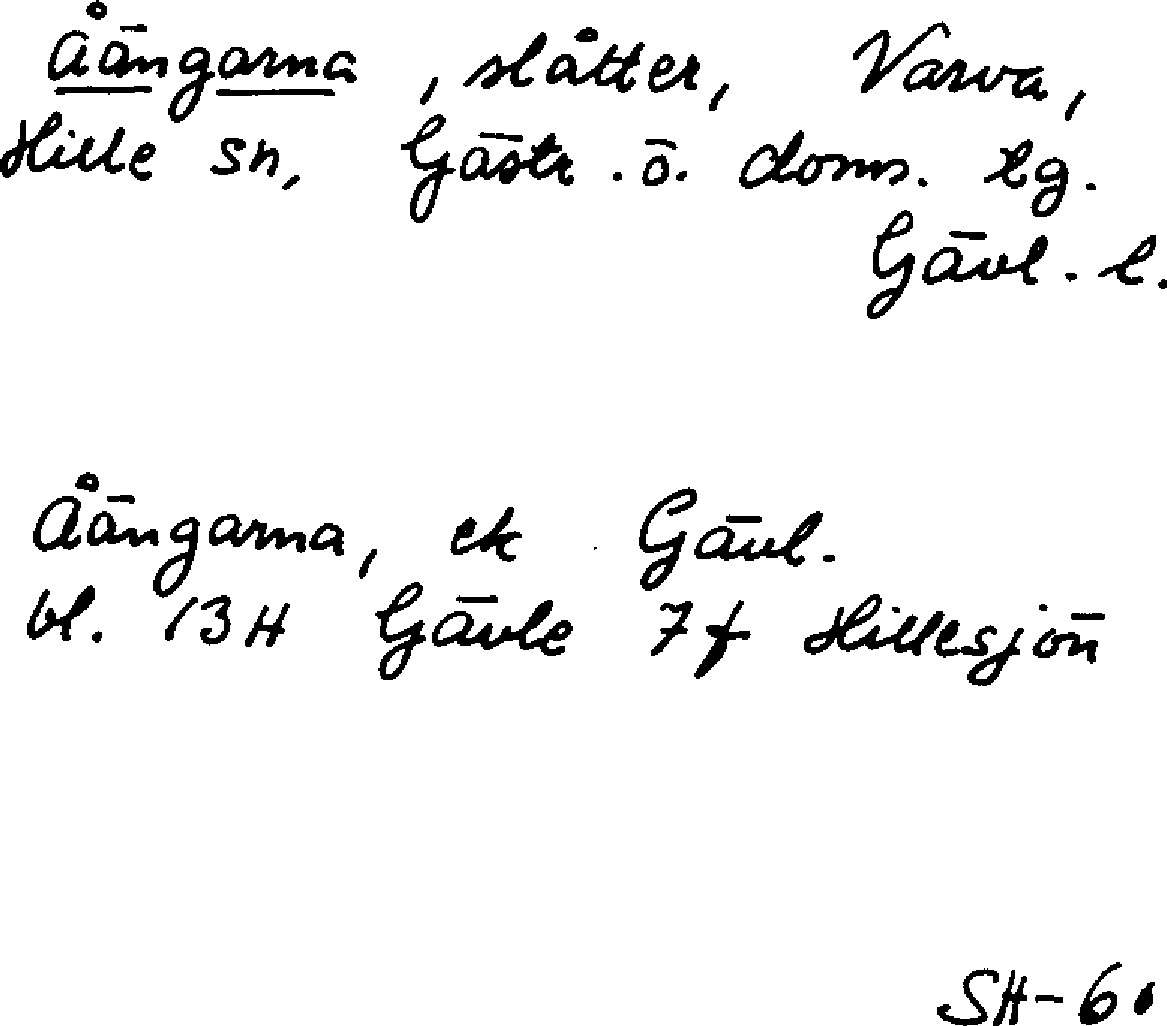 Åängarna, slåtter, Varva,
Hille sn, Gästr. ö. doms. lg.
Gävl. l.
Åängarna, ek Gävl.
bl. 13H Gävle 7f Hillesjön
SH-60